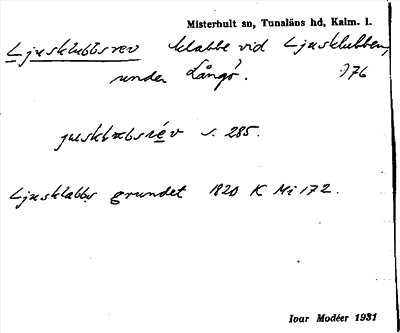 Misterhult sn, Tunaläns hd, Kalm. l.
Ljusklubbsrev klabbe vid Ljusklubben,
under Långö. 976
juskləbsrév s. 285.
Ljusklabbs grundet 1820 K Mi 172.
Ivar Modéer 1931